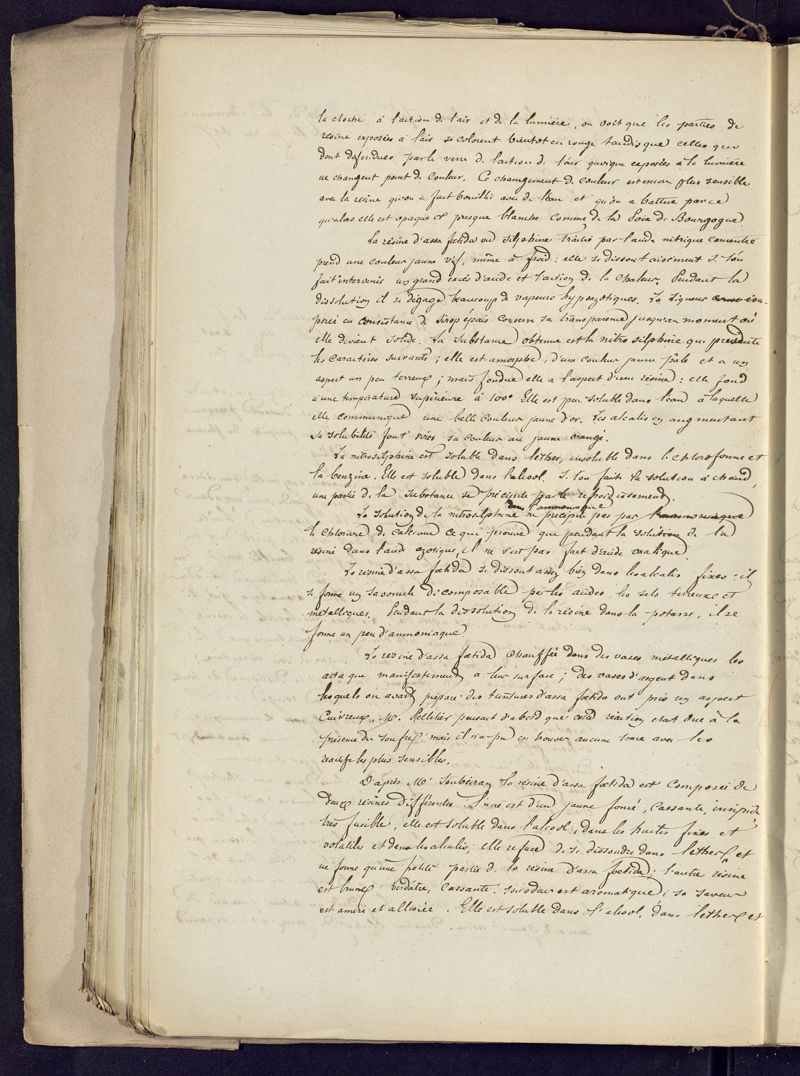 la cloche à l'action de l'air et de la lumière, on voit que les parties de
résine exposées à l'air se colorent bientot en rouge tandis que celles qui
sont défendues par le verre de l'action de l'air quoique exposées à la lumière
ne changent point de couleur. Ce changement de couleur est encore plus sensible
avec la résine qu'on a fait bouillir avec de l'eau et qu'on a battue parce
qu'alors elle est opaque et presque blanche comme de la Poix de Bourgogne.
La résine d'assa foetida ou silphine traitée par l'acide nitrique concentré
prend une couleur jaune vif, même à froid : elle se dissout aisément si l'on
fait intervenir un grand excès d'acide et l'action de la chaleur. Pendant la
dissolution il se dégage beaucoup de vapeurs hypoazotiques. La liqueur
en consistance de sirop épais conserve sa transparence jusqu'au moment où
elle devient solide. La substance obtenue est la nitro silphine qui présente
les caractères suivants ; elle est amorphe, d'une couleur jaune pale et a un
aspect un peu terreux ; mais fondue elle a l'aspect d'une résine : elle fond
à une température supérieure à 100° Elle est peu soluble dans l'eau à laquelle
elle communique une belle couleur jaune d'or. Les alcalis en augmentant
sa solubilité font virer sa couleur au jaune orangé.
La nitrosilphine est soluble dans l'ether, insoluble dans le chloroforme et
la benzine. Elle est soluble dans l'alcool. Si l'on fait la solution à chaud,
une partie de la substance se précipite par le refroidissement.
dans l'ammoniaque
La solution de la nitrosilphine ne précipite pas par l'ammoniaque
le chlorure de calcium ce qui prouve que pendant la solution de la
résine dans l'acid azotique, il ne s'est pas fait d'acide oxalique.
La résine d'assa foetida se dissout assez bien dans les alcalis fixes : il
se forme un savonule décomposable par les acides les sels terreux et
métalliques. Pendant la dissolution de la résine dans la potasse, il se
forme un peu d'ammoniaque
La résine d'assa foetida chauffée dans des vases métalliques les
attaque manifestement à leur surface ; des vases d'argent dans
lesquels on avait préparé des teintures d'assa foetida ont pris un aspect
cuivreux. M. Pelletier pensait d'abord que cette réaction etait due à la
présence du soufre mais il n'a pu en trouver aucune trace avec les
réactifs les plus sensibles.
D'après Mr Soubeiran la résine d'assa foetida est composée de
deux résines différentes. L'une est d'un jaune foncé, cassante, insipide
très fusible, elle est soluble dans l'alcool, dans les huiles fixes et
volatiles et dans les alcalis ; elle refuse de se dissoudre dans l'éther et
ne forme qu'une petite partie de la résine d'assa foetida ; l'autre résine
est brune verdâtre, cassante, son odeur est aromatique ; sa saveur
est amère et alliacée. Elle est soluble dans l'alcool, dans l'ether et